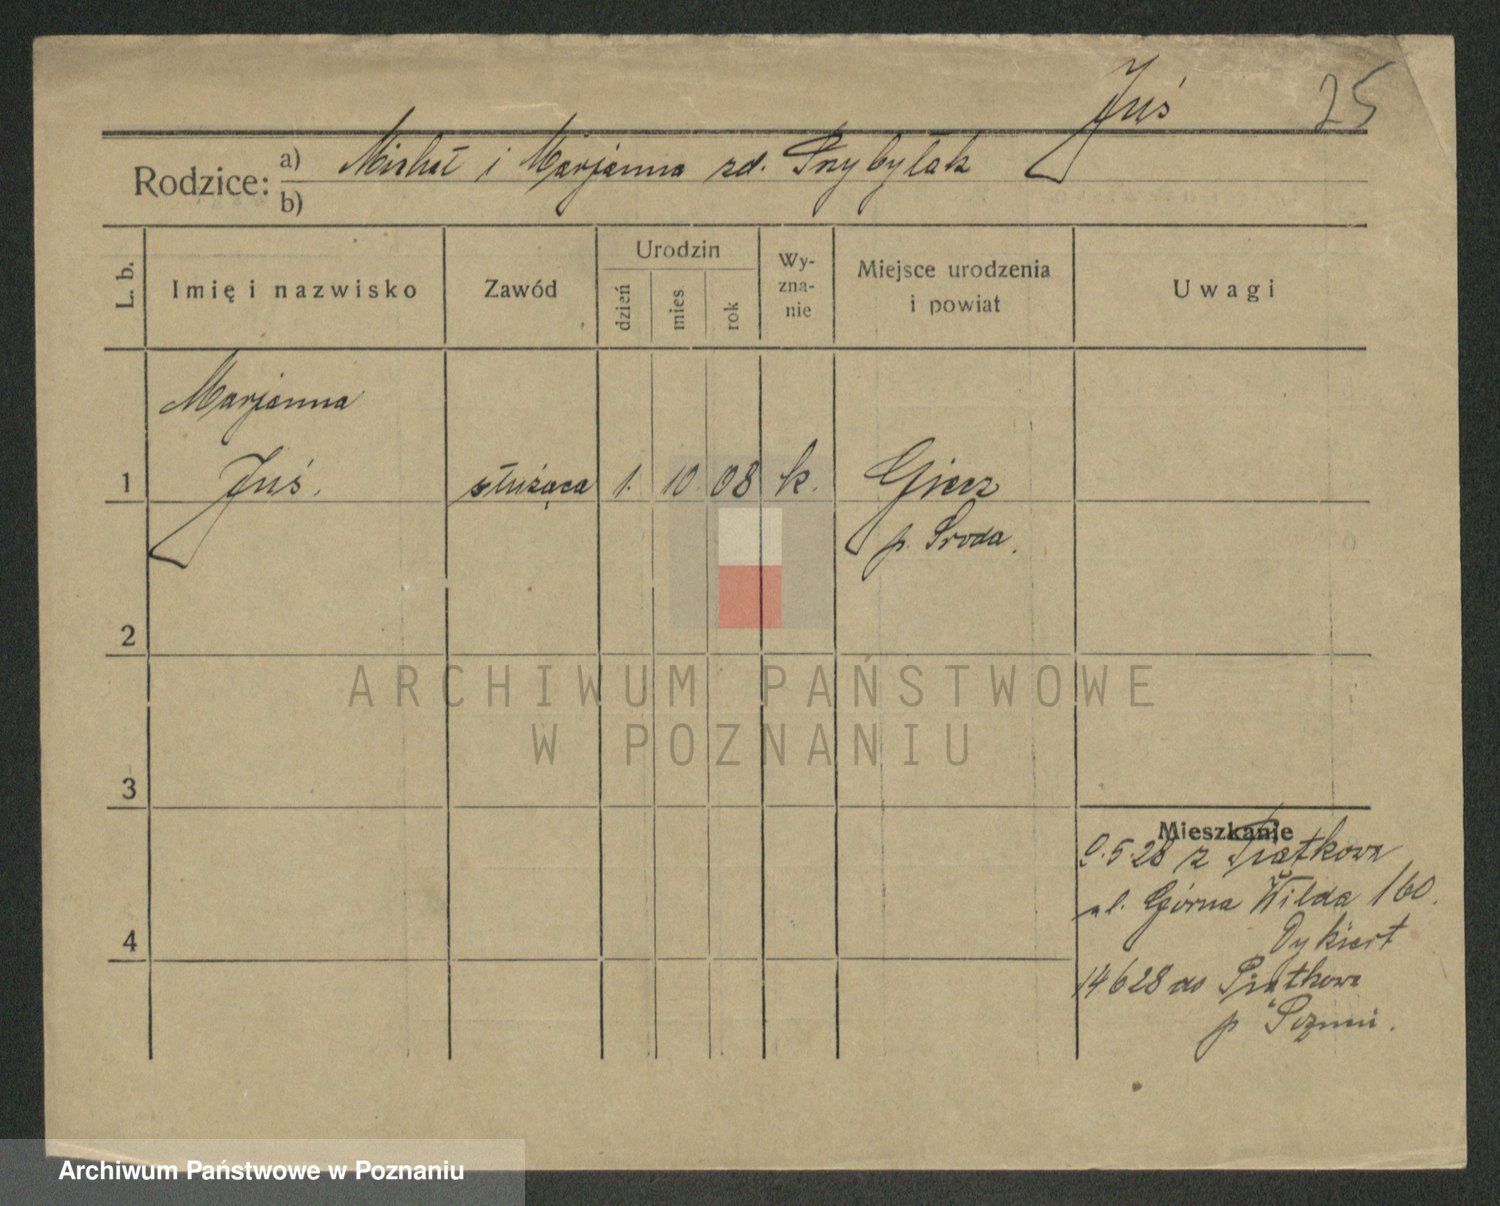 Juś
25
Rodzice:
a) Michał i Marjanna zd. Przybyłak
b)
L. b.
Imię i nazwisko
Zawód
Urodzin
dzień
mies
rok
Wy-
zna-
nie
Miejsce urodzenia
i powiat
Uwagi
Marjanna
1 Juś. służąca 1. 10 08 k. Giecz
p. Środa.
2
3
4
Mieszkanie
9.5.28 z Piątkowa
ul. Górna Wilda 160.
Dykiert
14 6 28 do Piątkowa
p
ARCHIWUM PAŃSTWOWE
W POZNANIU
Archiwum Państwowe w Poznaniu